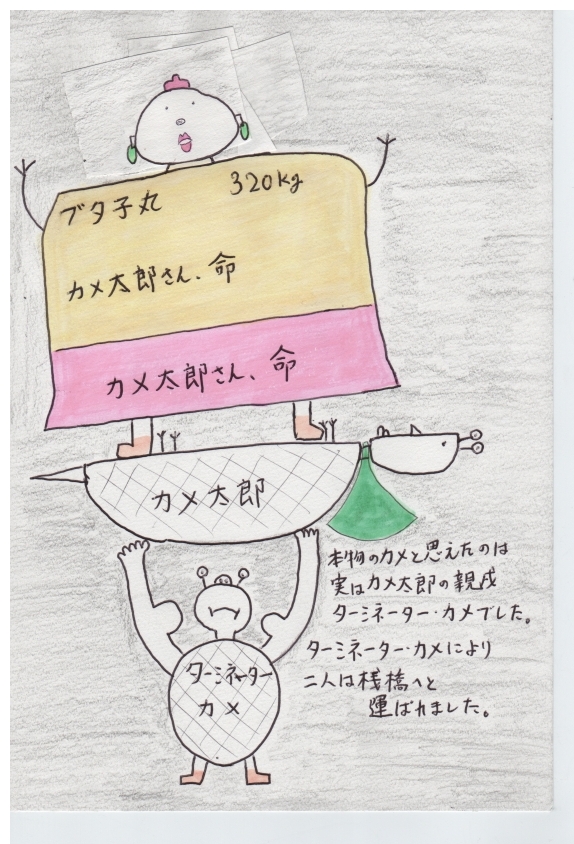 ブタ子丸 320kg
カメ太郎さん、命
カメ太郎さん、命
カメ太郎
本物のカメと思えたのは
実はカメ太郎の親戚
ターミネーター・カメでした。
ターミネーター・カメにより
二人は桟橋へと
運ばれました。
ターミネーター
カメ